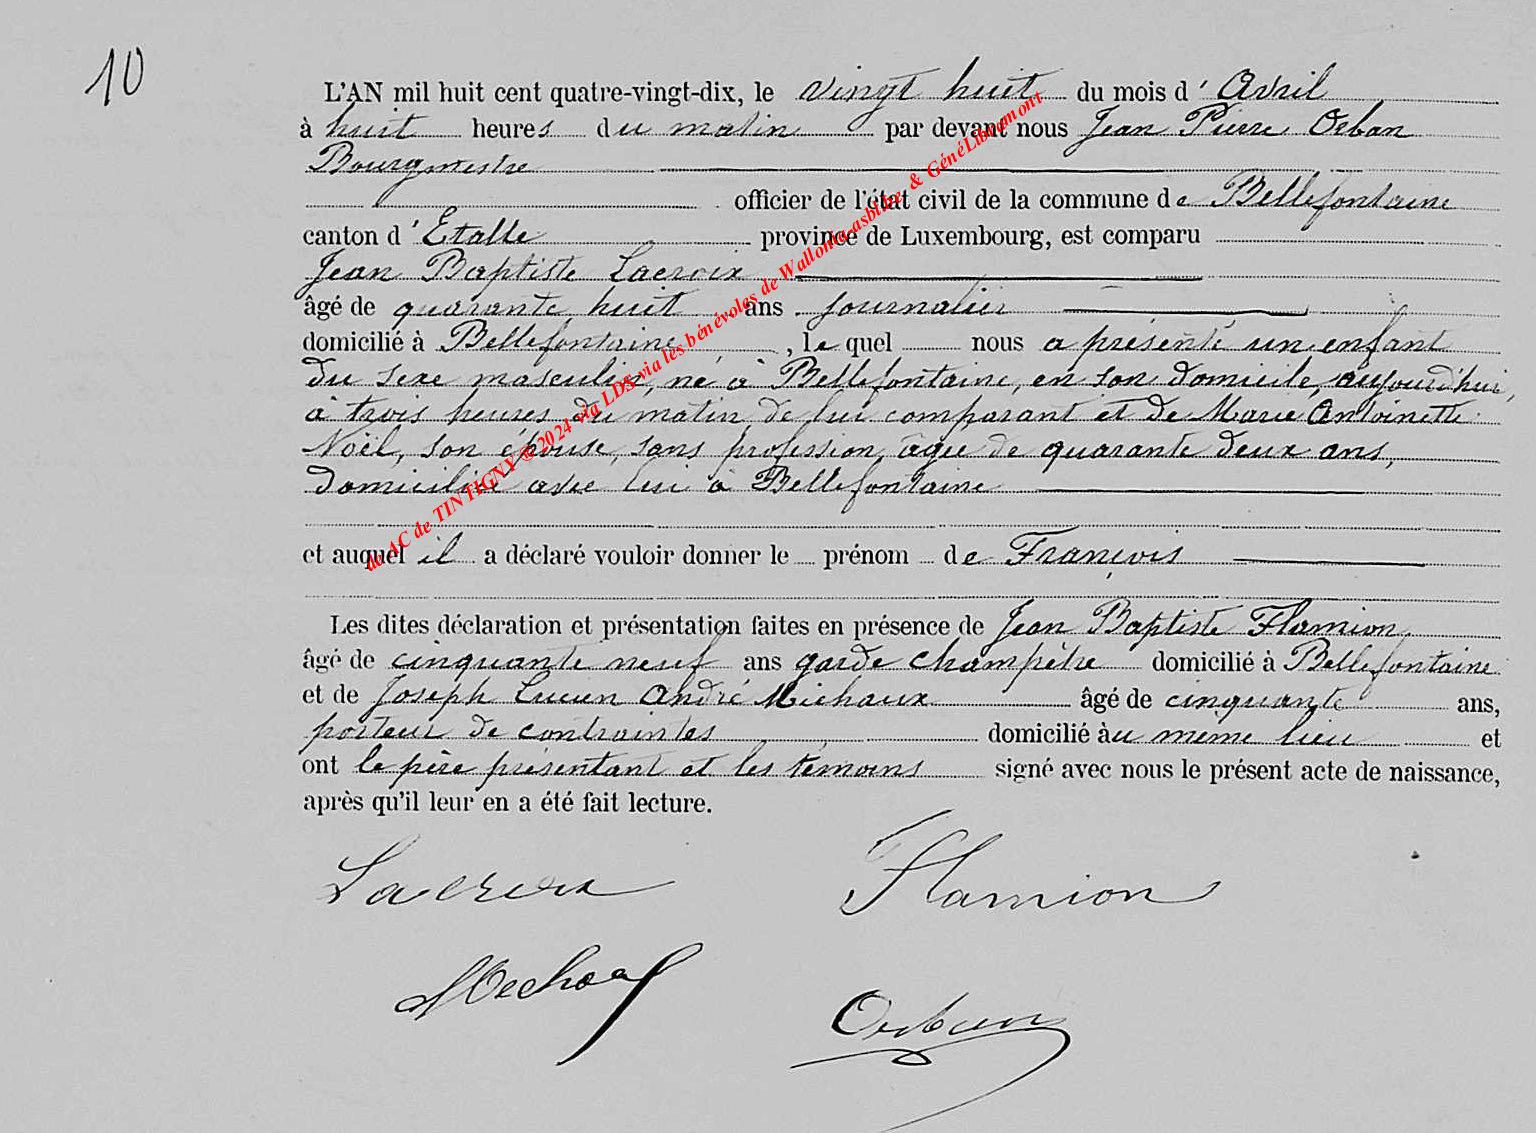 10
L'AN mil huit cent quatre-vingt-dix, le vingt huit du mois d'Avril
à huit heures du matin par devant nous Jean Pierre Orban
Bourgmestre
officier de l'état civil de la commune de Bellefontaine
canton d'Etalle province de Luxembourg, est comparu
Jean Baptiste Lacroix
âgé de quarante huit ans journalier
domicilié à Bellefontaine, lequel nous a présenté un enfant
du sexe masculin, né à Bellefontaine, en son domicile, aujourd'hui,
à trois heures du matin de lui comparant et de Marie Antoinette
Noël, son épouse, sans profession, âgée de quarante deux ans,
domiciliée avec lui à Bellefontaine
et auquel il a déclaré vouloir donner le prénom de François
Les dites déclaration et présentation faites en présence de Jean Baptiste Flamion,
âgé de cinquante neuf ans garde champêtre domicilié à Bellefontaine
et de Joseph Lucien André Michaux âgé de cinquante ans,
porteur de contraintes domicilié au même lieu et
ont le père présentant et les témoins signé avec nous le présent acte de naissance,
après qu'il leur en a été fait lecture.
Lacroix Flamion
Orban
de AC de TINTIGNY ©2024 via LDS via les bénévoles de Wallonia-asbl.be & GénéLibramont